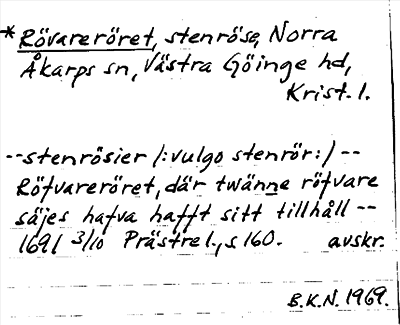 *Rövareröret, stenröse, Norra
Åkarps sn, Västra Göinge hd,
Krist. l.
--stenrösier /:vulgo stenrör:/ --
Röfvareröret, där twänne röfvare
säjes hafva hafft sitt tillhåll --
1691 3/10 Prästrel., s 160. avskr.
B.K.N. 1969.